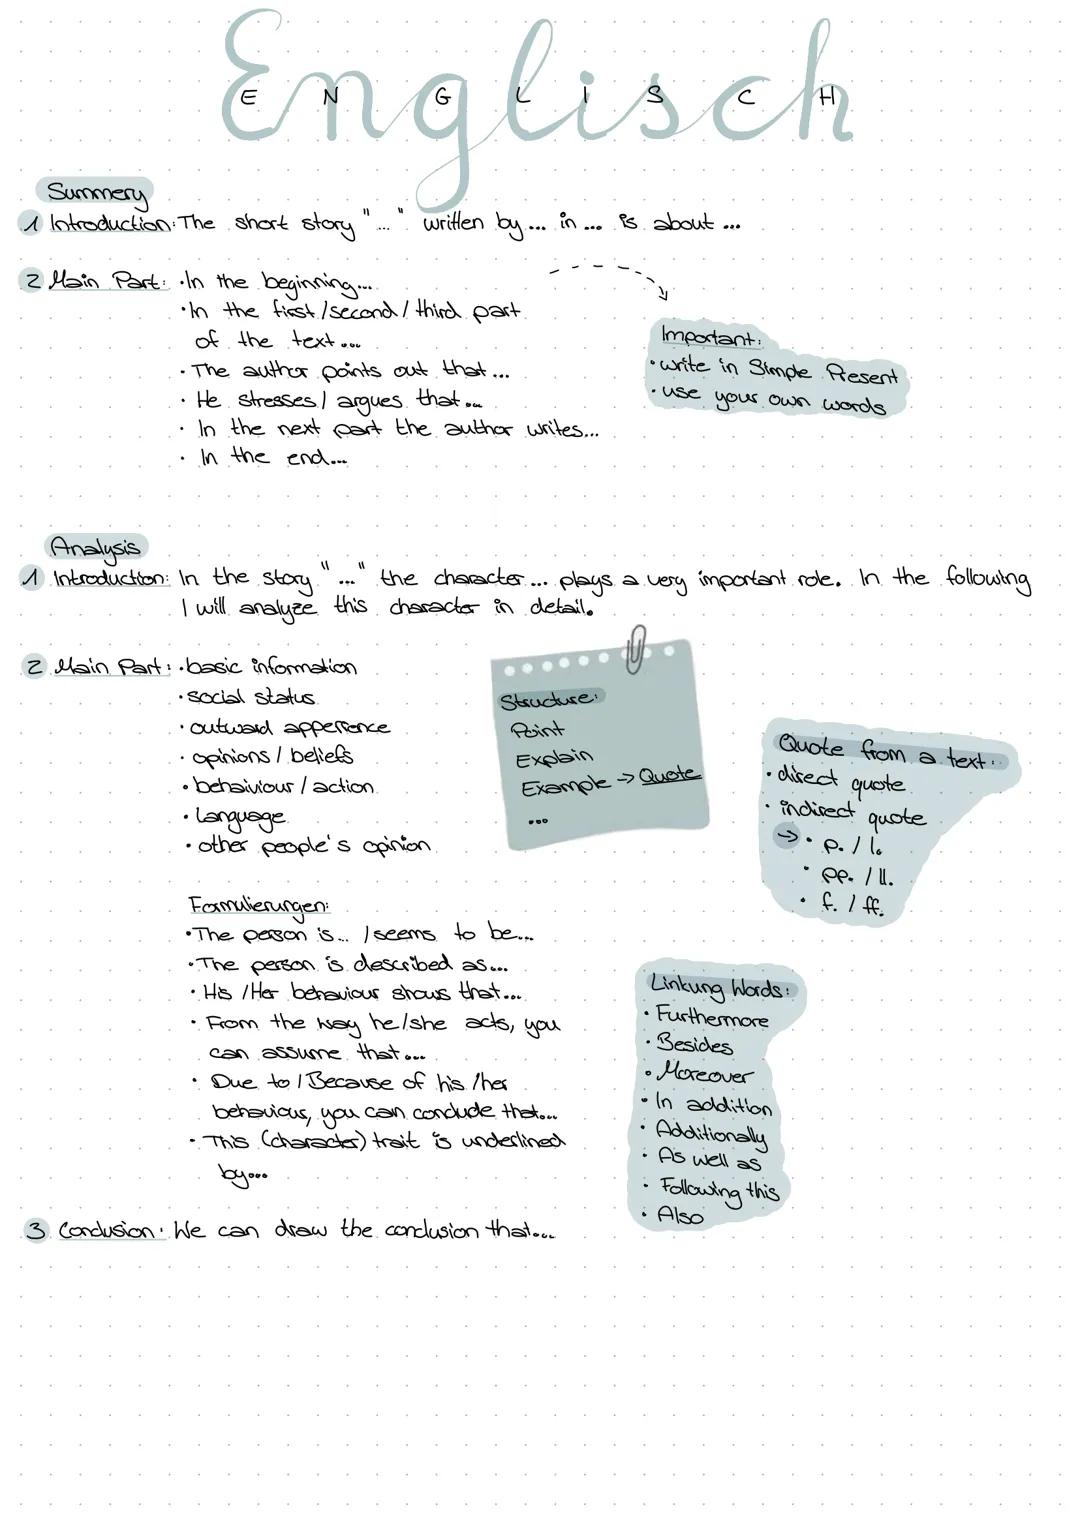 Englisch
E N G L I S C H
Summery
1 Introduction: The short story "..." written by ... in ... is about ...
2 Main Part: · In the beginning...
· In the first / second / third part
of the text ...
· The author points out that ...
· He stresses / argues that ...
· In the next part the author writes...
· In the end...
Important:
· write in Simple Present
· use your own words
Analysis
1 Introduction: In the story "..." the character ... plays a very important role. In the following
I will analyze this character in detail.
2 Main Part: · basic information
· social status
· outward apperence
· opinions / beliefs
· behaiviour / action
· Language
· other people's opinion
Structure:
Point
Explain
Example → Quote
...
Quote from a text:
· direct quote
· indirect quote
→ · p. / l.
· pp. / ll.
· f. / ff.
Formulierungen:
· The person is... / seems to be...
· The person is described as...
· His / Her behaviour shows that...
· From the way he/she acts, you
can assume that...
· Due to / Because of his / her
behaviour, you can conclude that...
· This (character) trait is underlined
by...
Linkung Words:
· Furthermore
· Besides
· Moreover
· In addition
· Additionally
· As well as
· Following this
· Also
3 Conclusion: We can draw the conclusion that...